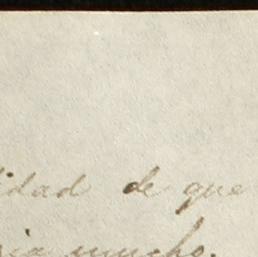 lidad de que
ria mucho.